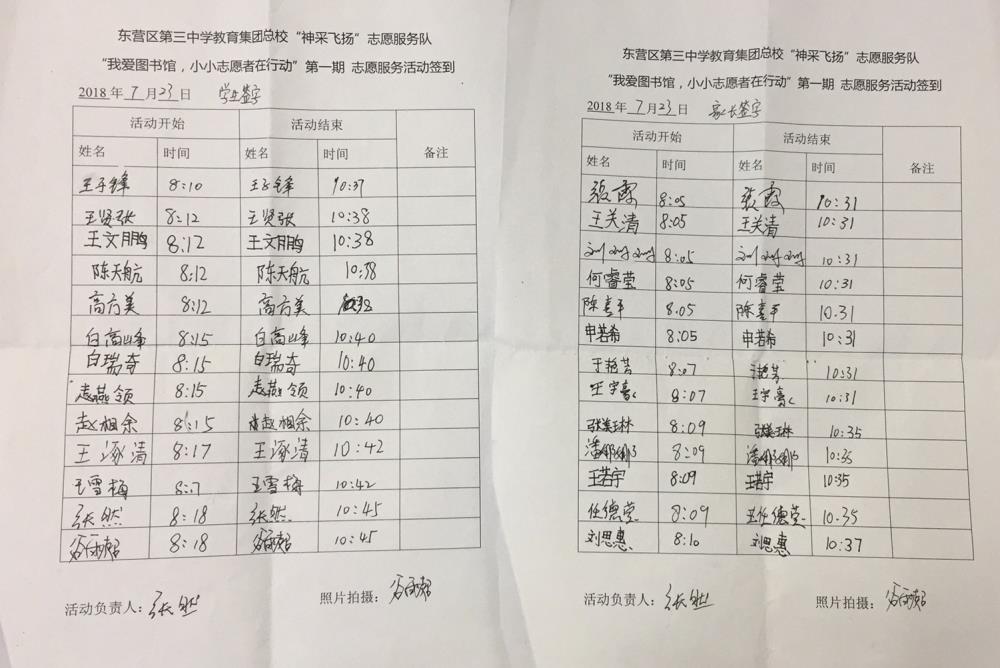 东营区第三中学教育集团总校“神采飞扬”志愿服务队
“我爱图书馆，小小志愿者在行动”第一期 志愿服务活动签到
2018年7月23日 学生签字
活动开始 活动结束 备注
姓名 时间 姓名 时间
王子锋 8:10 王子锋 10:37
王贤张 8:12 王贤张 10:38
王文鹏 8:12 王文鹏 10:38
陈天航 8:12 陈天航 10:38
高方美 8:12 高方美
白高峰 8:15 白高峰 10:40
白瑞奇 8:15 白瑞奇 10:40
燕领 8:15 燕领 10:40
赵相余 8:15 赵相余 10:40
王涿清 8:17 王涿清 10:42
王雪梅 8:17 王雪梅 10:42
张然 8:18 张然 10:45
8:18 10:45
活动负责人：张然 照片拍摄：
东营区第三中学教育集团总校“神采飞扬”志愿服务队
“我爱图书馆，小小志愿者在行动”第一期 志愿服务活动签到
2018年7月23日 家长签字
活动开始 活动结束 备注
姓名 时间 姓名 时间
张霞 8:05 张霞 10:31
王关清 8:05 王关清 10:31
刘 8:05 刘 10:31
何睿莹 8:05 何睿莹 10:31
陈喜平 8.05 陈喜平 10.31
申若希 8:05 申若希 10:31
于艳芳 8:07 艳芳 10:31
王宇豪 8:07 王宇豪 10:31
张美琳 8:09 张美琳 10:35
潘娜娜 8:09 潘娜娜 10:35
王若宇 8:09 王若宇 10:35
任德莹 8:09 任德莹 10.35
刘思惠 8:10 刘思惠 10:37
活动负责人：张然 照片拍摄：